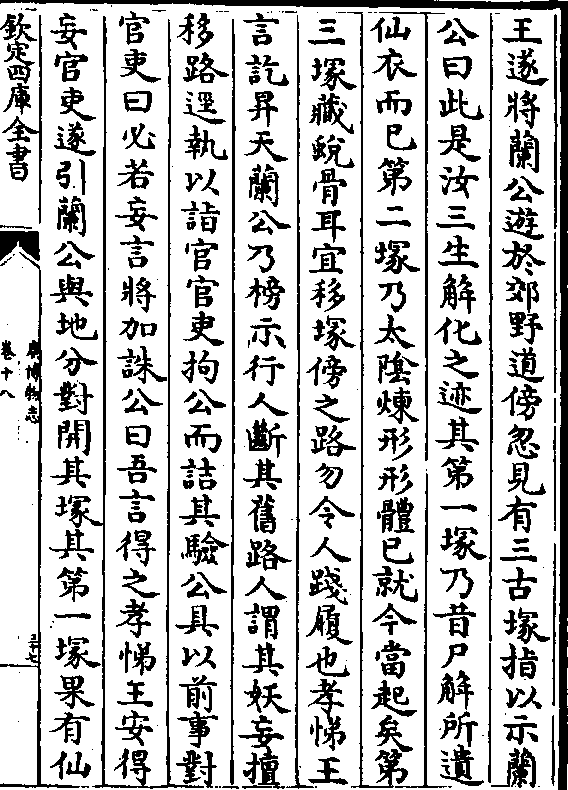 王遂將蘭公遊於郊野道傍忽見有三古塚指以示蘭
公曰此是汝三生解化之迹其第一塚乃昔尸解所遺
仙衣而已第二塚乃太陰煉形形體已就今當起矣第
三塚藏蛻骨耳宜移塚傍之路勿令人踐履也孝悌王
言訖昇天蘭公乃榜示行人斷其舊路人謂其妖妄擅
移路逕執以詣官官吏拘公而詰其驗公具以前事對
官吏曰必若妄言將加誅公曰吾言得之孝悌王安得
妄官吏遂引蘭公與地分對開其塚其第一塚果有仙
欽定四庫全書
廣博物志
卷十八
三十七